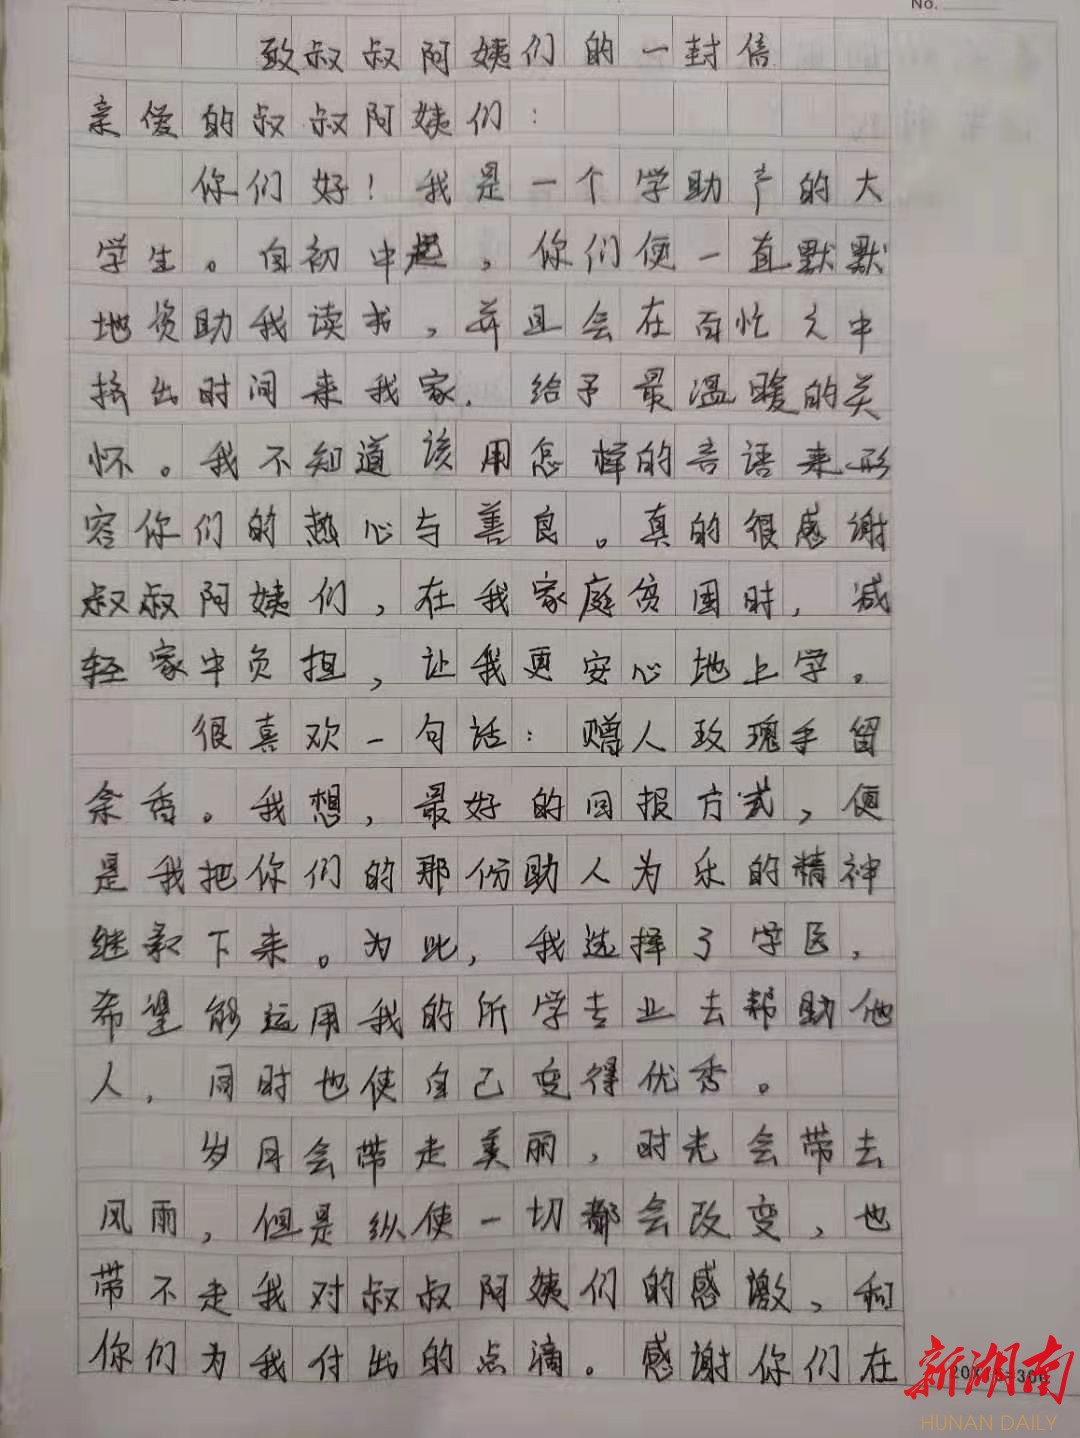 No.
致叔叔阿姨们的一封信
亲爱的叔叔阿姨们：
你们好！我是一个学助产的大
学生。自初中起，你们便一直默默
地资助我读书，并且会在百忙之中
挤出时间来我家，给予最温暖的关
怀。我不知道该用怎样的言语来形
容你们的热心与善良。真的很感谢
叔叔阿姨们，在我家庭贫困时，减
轻家中负担，让我更安心地上学。
很喜欢一句话：赠人玫瑰手留
余香。我想，最好的回报方式，便
是我把你们的那份助人为乐的精神
继续下来。为此，我选择了学医，
希望能运用我的所学专业去帮助他
人，同时也使自己变得优秀。
岁月会带走美丽，时光会带去
风雨，但是纵使一切都会改变，也
带不走我对叔叔阿姨们的感激，和
你们为我付出的点滴。感谢你们在
新湖南
HUNAN DAILY